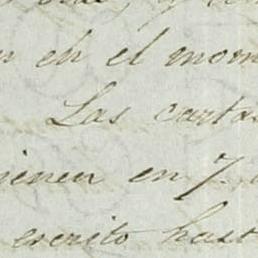 en el mom
Las cartas
ienen en 7
escrito hast